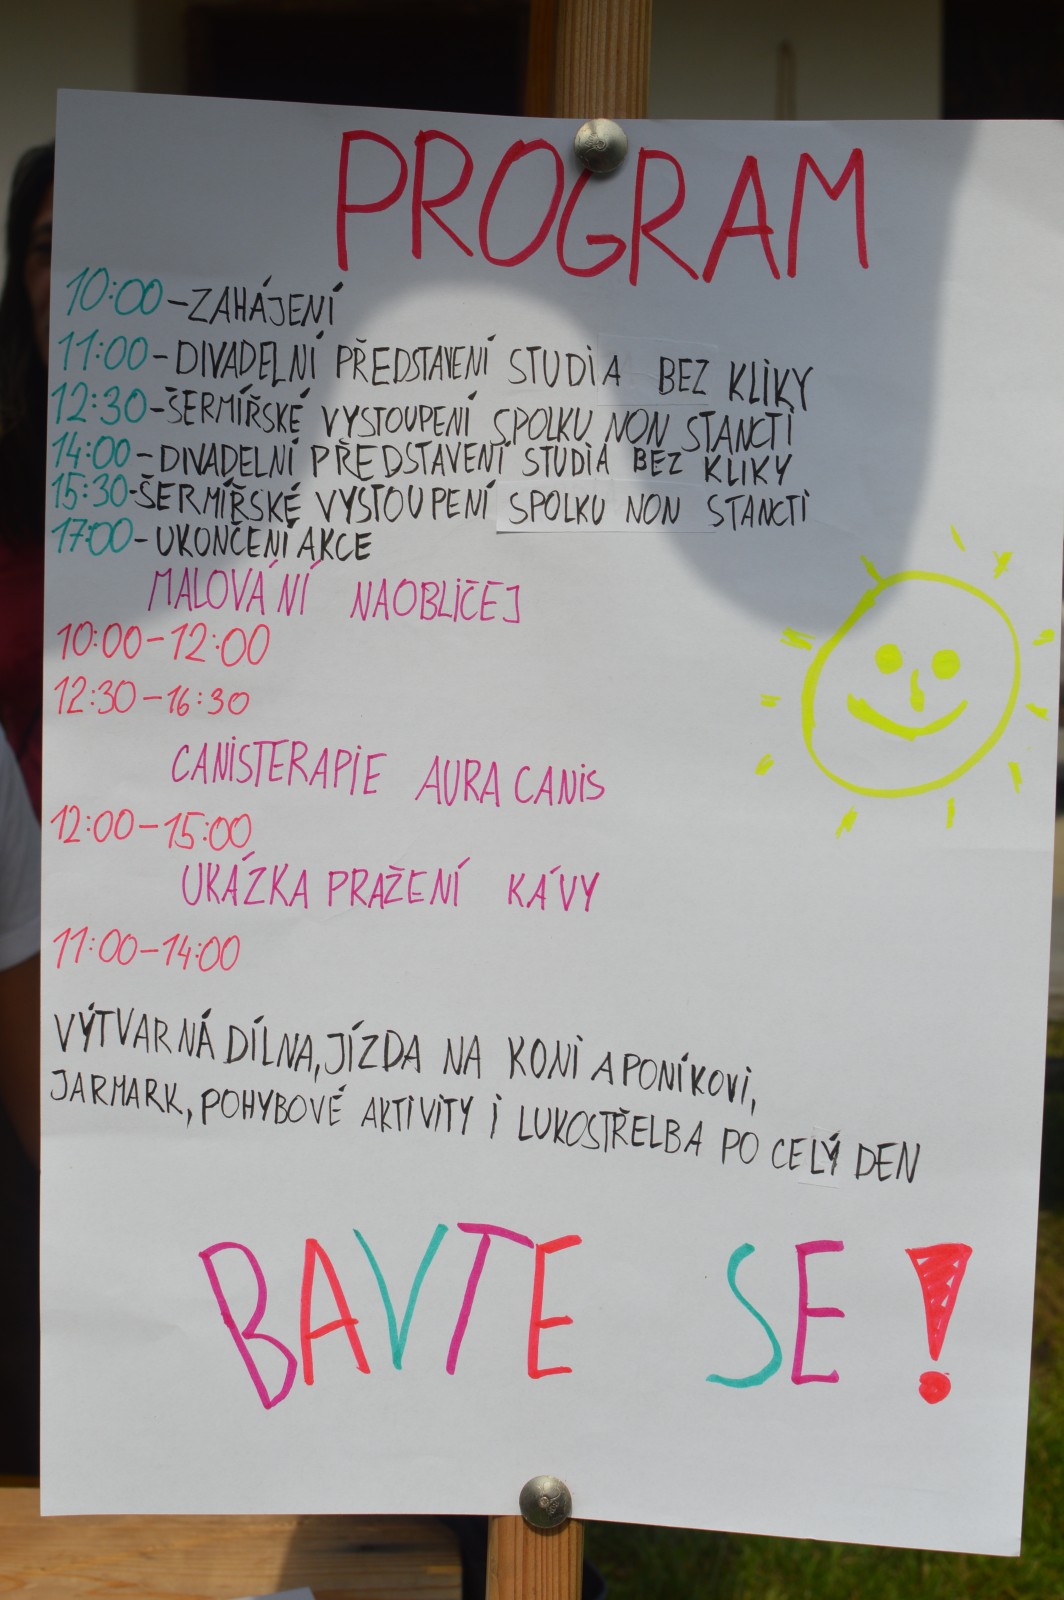 PROGRAM
10:00-ZAHÁJENÍ
11:00-DIVADELNÍ PŘEDSTAVENÍ STUDIA BEZ KLIKY
12:30-ŠERMÍŘSKÉ VYSTOUPENÍ SPOLKU NON STANCTI
14:00-DIVADELNÍ PŘEDSTAVENÍ STUDIA BEZ KLIKY
15:30-ŠERMÍŘSKÉ VYSTOUPENÍ SPOLKU NON STANCTI
17:00-UKONČENÍ AKCE
MALOVÁNÍ NAOBLIČEJ
10:00-12:00
12:30-16:30
CANISTERAPIE AURA CANIS
12:00-15:00
UKÁZKA PRAŽENÍ KÁVY
11:00-14:00
VÝTVARNÁ DÍLNA, JÍZDA NA KONI A PONÍKOVI,
JARMARK, POHYBOVÉ AKTIVITY I LUKOSTŘELBA PO CELÝ DEN
BAVTE SE!